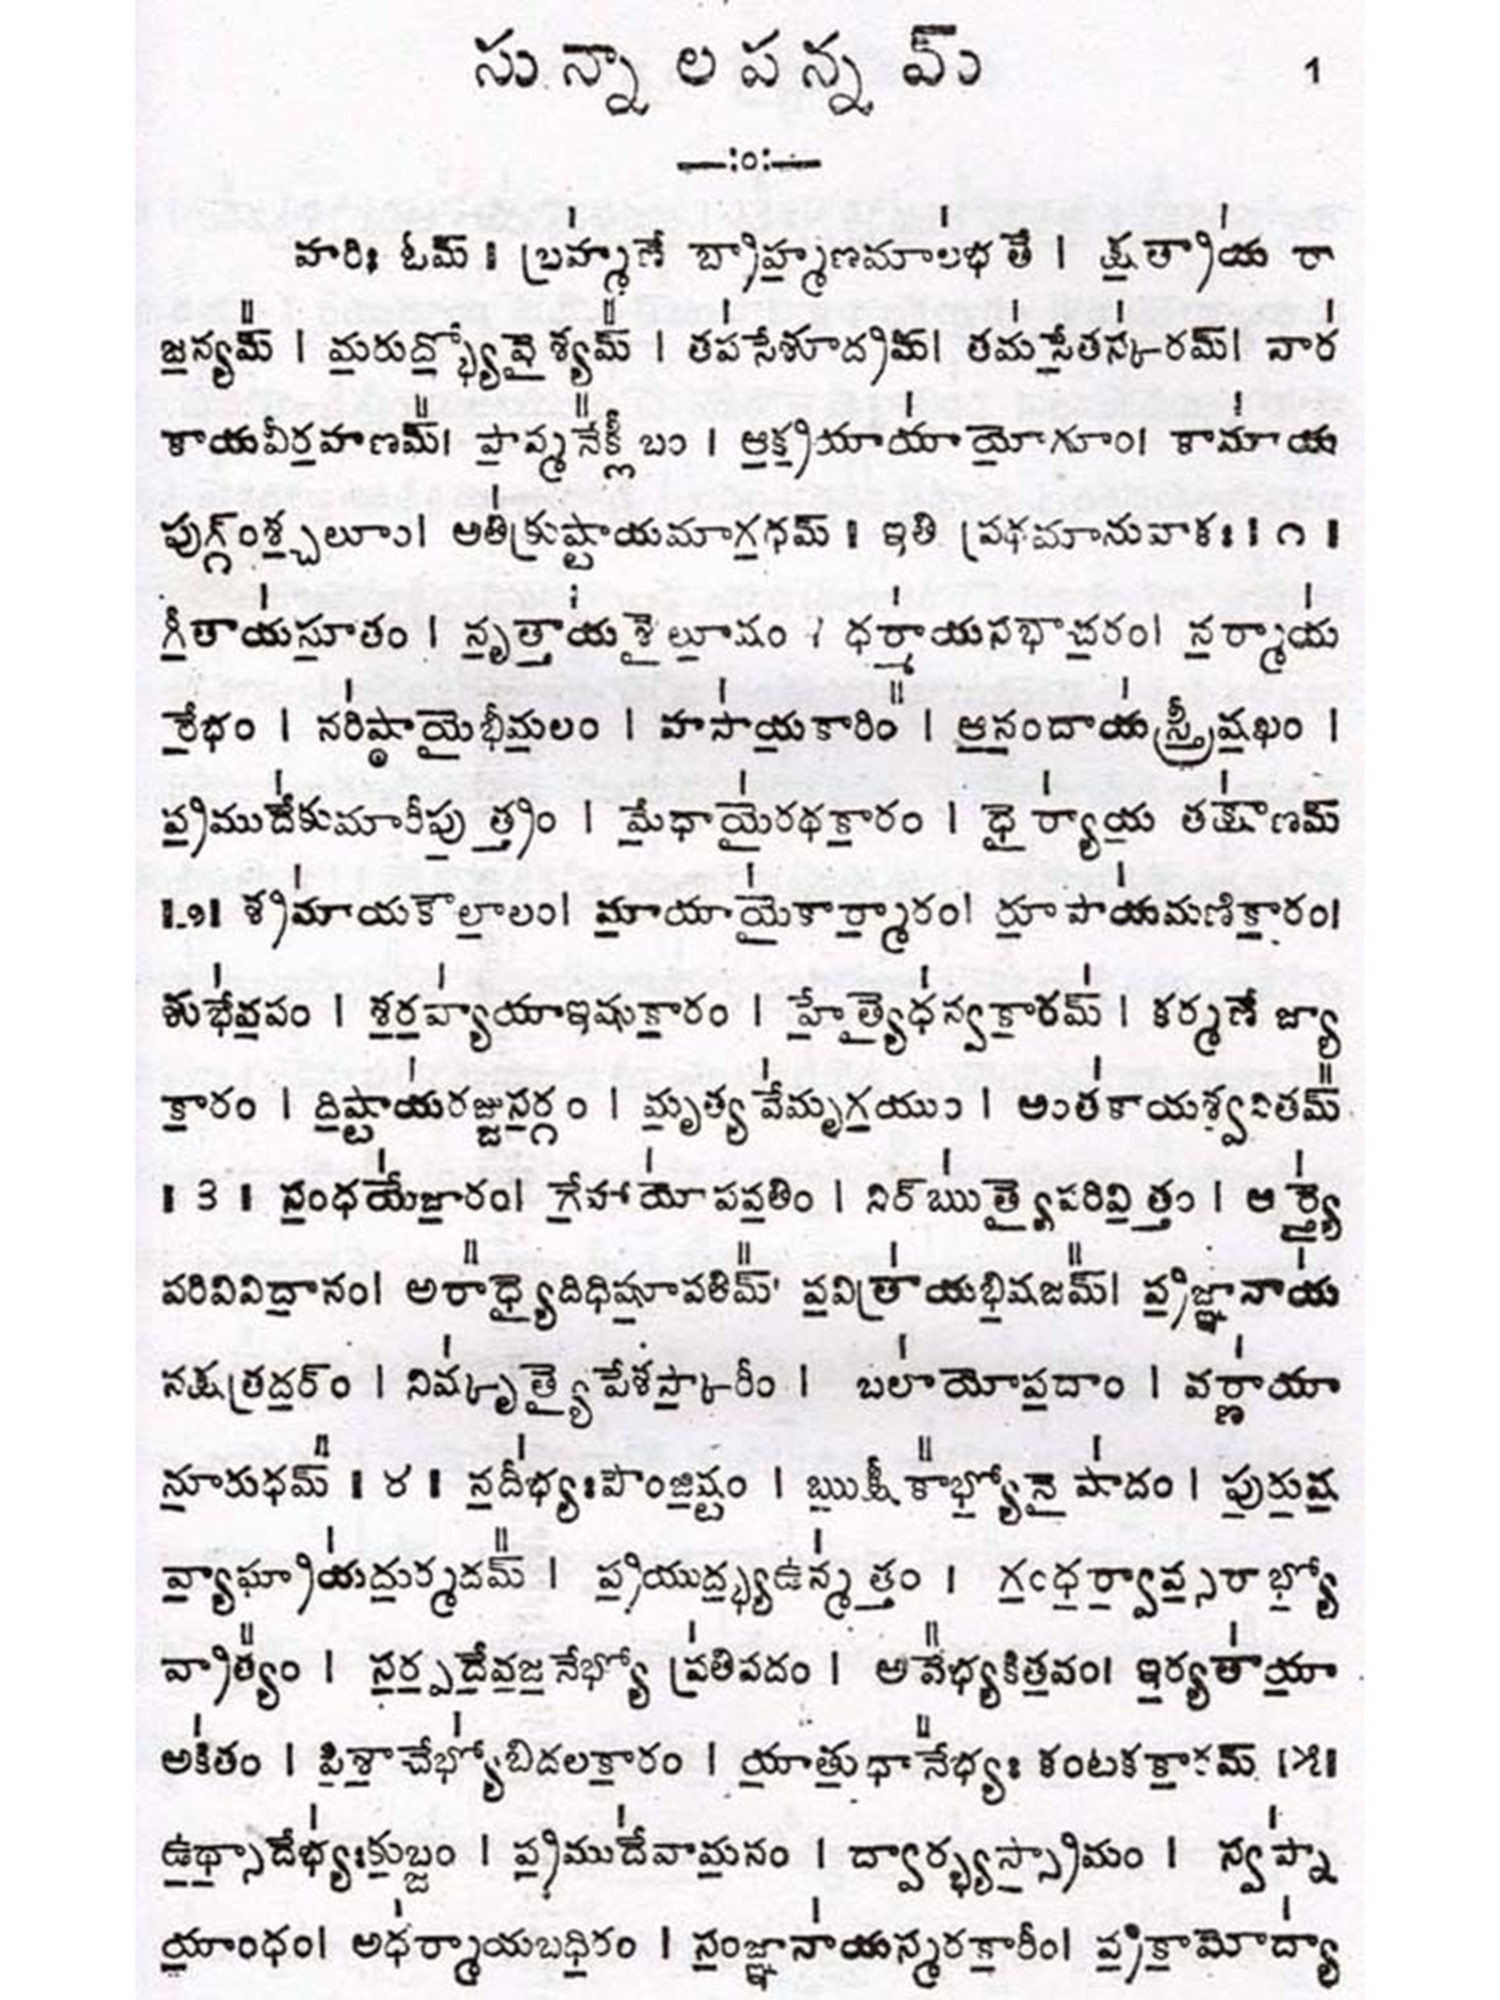 సున్నాలపన్నమ్ 1
—:o:—
హరిః ఓమ్ ॥ బ్రహ్మ॑ణే బ్రా॒హ్మ॒ణమాల॑భతే । క్ష॒త్రా॒య॑ రా
జ॒న్య᳚మ్ । మ॒రుద్భ్యో॒వైశ్య᳚మ్ । తప॑సేశూ॒ద్రమ్। తమ॑సే॒తస్క॑రమ్। నార॑
కాయవీర॒హణ᳚మ్। పా॒ప్మనే᳚క్లీ॒బం । ఆ॒క్ర॒యాయా॑యో॒గూం। కామా॑య
పుగ్గ్ం॒శ్చ॒లూం। అతి॑క్రుష్టాయమాగ॒ధమ్ ॥ ఇతి ప్రథమానువాకః ॥ ౧ ॥
గీ॒తాయ॑సూ॒తం । నృ॒త్తాయ॑శైలూ॒షం । ధర్మా॑యసభాచ॒రం। న॒ర్మాయ॑
రే॒భం । నరి॑ష్ఠాయైభీమ॒లం । హసా॑య॒కారిం᳚ । ఆ॒నం॒దాయ॑స్త్రీష॒ఖం ।
ప్ర॒ముదే॑కుమారీపు॒త్త్రం । మే॒ధాయై॑రథకా॒రం । ధైర్యా॑య॒ తక్షా॑ణమ్
॥౨॥ శ్రమా॑యకౌలా॒లం। మా॒యాయై॑కార్మా॒రం। రూ॒పాయ॑మణికా॒రం।
శుభే॑వ॒పం । శ॒ర॒వ్యా॑యాఇషుకా॒రం । హే॒త్యైధ॑న్వకా॒రమ్॑ । కర్మణే జ్యా
కా॒రం । ది॒ష్టాయ॑రజ్జుస॒ర్గం । మృ॒త్యవే॑మృగ॒యుం । అంత॑కాయశ్వ॒నితమ్᳚
॥ ౩ ॥ సం॒ధయే॑జా॒రం। గే॒హాయో॑పప॒తిం । నిర్‌ఋ॑త్యైపరివి॒త్తం । ఆర్త్యై॑
పరివివిదా॒నం। అరా᳚ధ్యైదిధిషూ॒పతిమ్᳚ ప॒విత్రా॑యభి॒షజమ్᳚। ప్ర॒జ్ఞానా॑య
నక్షత్రద॒ర్‌శం । నిష్కృ॑త్యైపేశస్కా॒రీం । బలా॑యోప॒దాం । వర్ణా॑యా
నూ॒రుధమ్᳚ ॥ ౪ ॥ న॒దీభ్యః॑పౌంజి॒ష్టం । ఋ॒క్షీకా᳚భ్యో॒నైషా॑దం । పు॒రు॒ష॒
వ్యా॒ఘ్రాయ॑దు॒ర్మదమ్᳚ । ప్ర॒యుద్భ్య॒ఉన్మ॑త్తం । గం॒ధ॒ర్వా॒ప్స॒రాభ్యో॒
వ్రాత్యం᳚ । స॒ర్ప॒దే॒వ॒జ॒నేభ్యో ప్ర॑తిపదం । అవే᳚భ్యకిత॒వం। ఇ॒ర్యతా॑యా॒
అకి॑తం । పి॒శా॒చేభ్యో॑బిదలకా॒రం । యా॒తు॒ధానే᳚భ్యః కంటకకా॒రమ్ ॥౫॥
ఉ॒థ్సా॒దేభ్యః॑కు॒బ్జం । ప్ర॒ముదే॑వామ॒నం । ద్వార్భ్యస్స్రా॒మం । స్వప్నా॑
యాం॒ధం। అధ॑ర్మాయబధి॒రం । సం॒జ్ఞానా॑యస్మరకా॒రీం। ప్ర॒కా॒మోద్యా॑